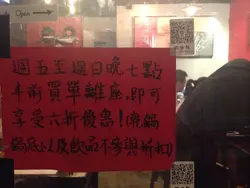 Open
週五至週日晚七點
半前買單離座,即可
享受六折優惠!(鴛鍋
鍋底以及飲品不參與折扣)